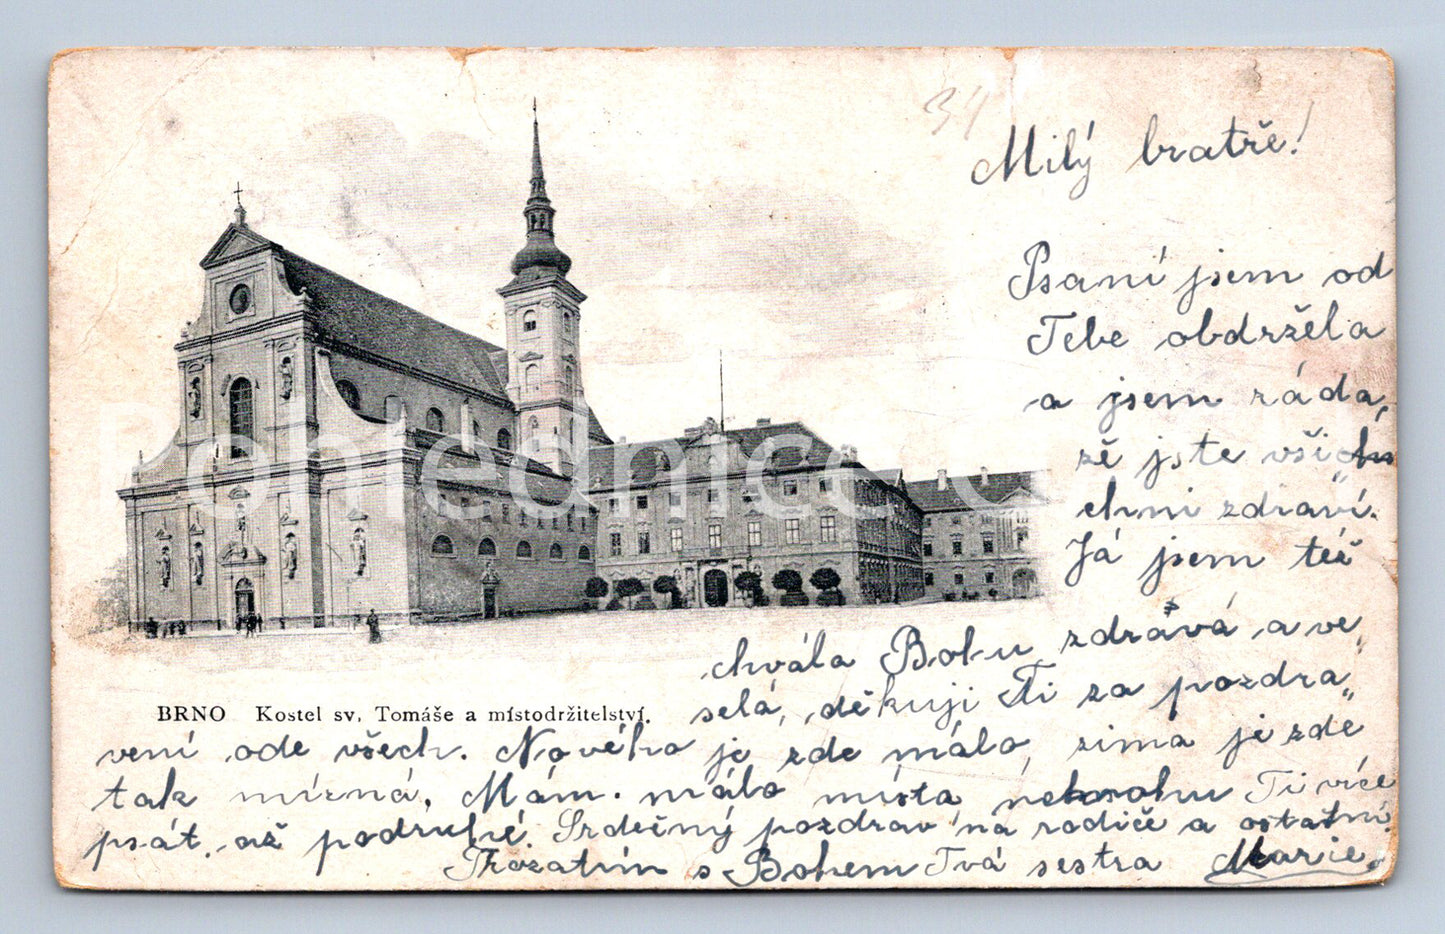 34
Milý bratře!
Psaní jsem od
Tebe obdržela
a jsem ráda,
žě jste všich„
chni zdraví.
Já jsem též
chvála Bohu zdrává a ve„
selá, děkuji Ti za pozdra„
BRNO Kostel sv. Tomáše a místodržitelství.
vení ode všech. Nového je zde málo, zima je zde
tak mírná. Mám málo místa, nemohu Ti více
psát, až podruhé. Srdečný pozdrav na rodiče a ostatní.
Prozatím s Bohem Tvá sestra Marie.
Pohlednice.com